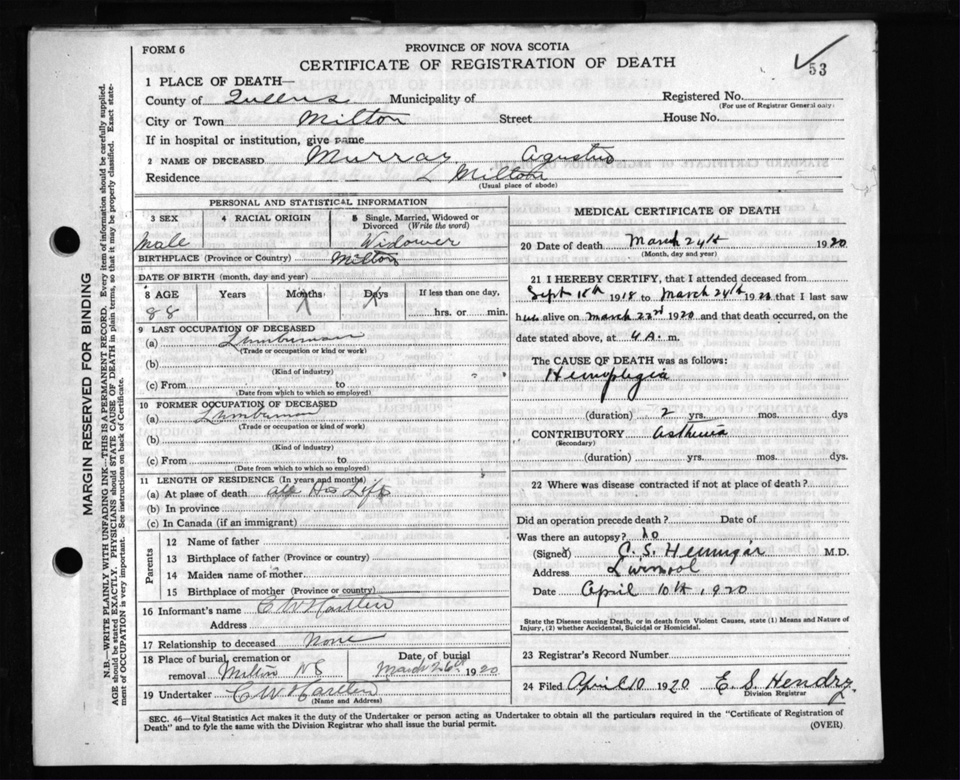 FORM 6
PROVINCE OF NOVA SCOTIA
CERTIFICATE OF REGISTRATION OF DEATH
53
1 PLACE OF DEATH—
County of Queens Municipality of
Registered No.
(For use of Registrar General only)
City or Town Milton Street House No.
If in hospital or institution, give name
2 NAME OF DECEASED Murray Agustus
Residence Milton
(Usual place of abode)
PERSONAL AND STATISTICAL INFORMATION
3 SEX
4 RACIAL ORIGIN
5 Single, Married, Widowed or Divorced (Write the word)
Male
Widower
BIRTHPLACE (Province or Country) Milton
DATE OF BIRTH (month, day and year)
8 AGE Years Months Days If less than one day,
88 hrs. or min.
9 LAST OCCUPATION OF DECEASED
(a) Lumberman
(Trade or occupation or kind or work)
(b)
(Kind of industry)
(c) From to
(Date from which to which so employed)
10 FORMER OCCUPATION OF DECEASED
(a) Lumberman
(Trade or occupation or kind of work)
(b)
(Kind of industry)
(c) From to
(Date from which to which so employed)
11 LENGTH OF RESIDENCE (In years and months)
(a) At place of death all His Life
(b) In province
(c) In Canada (if an immigrant)
Parents
12 Name of father
13 Birthplace of father (Province or country)
14 Maiden name of mother
15 Birthplace of mother (Province or country)
16 Informant's name C W Hartlin
Address
17 Relationship to deceased None
18 Place of burial, cremation or removal Milton NS
Date of burial March 26th 1920
19 Undertaker C W Hartlin
(Name and Address)
MEDICAL CERTIFICATE OF DEATH
20 Date of death March 24th 1920
(Month, day and year)
21 I HEREBY CERTIFY, that I attended deceased from
Sept 18th 1918 to March 24th 1920 that I last saw
him alive on March 23rd 1920 and that death occurred, on
date stated above, at 4 A. m.
The CAUSE OF DEATH was as follows:
Hemiplegia
(duration) 2 yrs. mos. dys
CONTRIBUTORY asthenia
(Secondary)
(duration) yrs. mos. dys.
22 Where was disease contracted if not at place of death?
Did an operation precede death? Date of
Was there an autopsy? No
(Signed) C. S. Hennigar M.D.
Address Liverpool
Date April 10th 1920
State the Disease causing Death, or in death from Violent Causes, state (1) Means and Nature of
Injury, (2) whether Accidental, Suicidal or Homicidal.
23 Registrar's Record Number
24 Filed April 10 1920 E. S. Hendry
Division Registrar
SEC. 46—Vital Statistics Act makes it the duty of the Undertaker or person acting as Undertaker to obtain all the particulars required in the "Certificate of Registration of
Death" and to fyle the same with the Division Registrar who shall issue the burial permit.
(OVER)
MARGIN RESERVED FOR BINDING
N.B.—WRITE PLAINLY WITH UNFADING INK—THIS IS A PERMANENT RECORD. Every item of information should be carefully supplied.
AGE should be stated EXACTLY. PHYSICIANS should STATE CAUSE OF DEATH in plain terms, so that it may be properly classified. Exact state-
ment of OCCUPATION is very important. See instructions on back of Certificate.